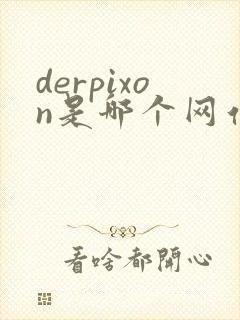 derpixo
n是哪个网
看啥都開心